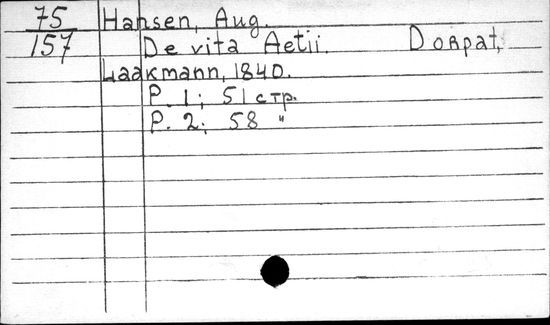 75 Hansen, Aug.
157 De vita Aetii. Dorpat,
Laakmann, 1840.
P. 1; 51 стр.
P. 2; 58 "